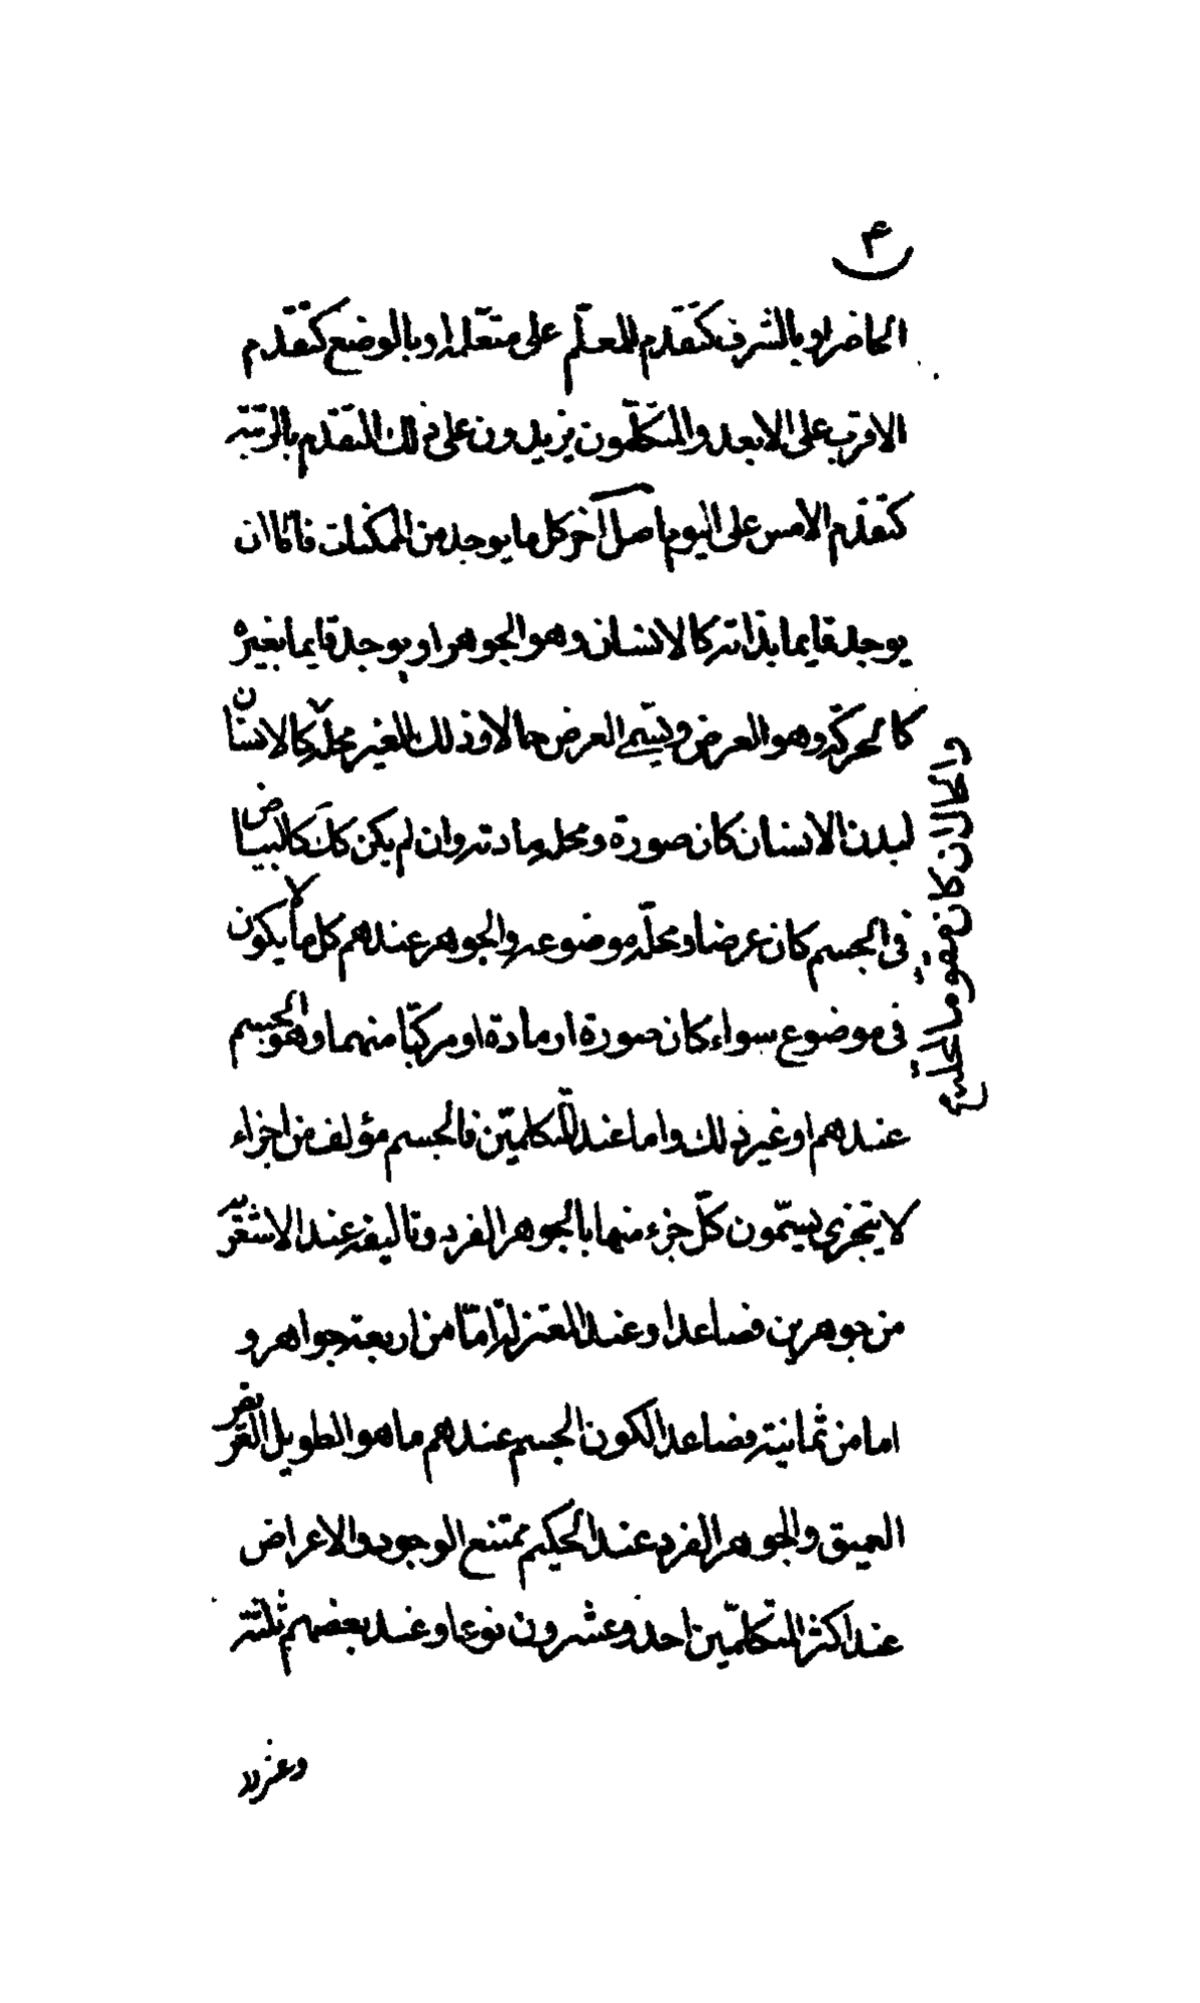 ۴
الحاضر او بالشرف كتقدم المعلّم على متعلمه او بالوضع كتقدم
الاقرب على الابعد والمتكلّمون يزيدون على ذلك التقدم بالرتبة
كتقدم الامس على اليوم اصل آخر كل ما يوجد من الممكنات فاما ان
يوجد قايما بذاته كالانسان وهو الجوهر او يوجد قايما بغيره
كالحركة وهو العرض ويسمى العرض حالا وذلك الغير محلّه كالانسان
لبدن الانسان كان صورة ومحله مادته وان لم يكن كك كالبياض
فى الجسم كان عرضا ومحلّه موضوعه والجوهر عندهم كل ما لا يكون
فى موضوع سواء كان صورة او مادة او مركبّا منهما وهو الجسم
عندهم او غير ذلك واما عند المتكلميّن فالجسم مؤلف من اجزاء
لا يتجزى يسمّون كلّ جزء منها بالجوهر الفرد وتاليفه عند الاشعرية
من جوهرين فصاعدا وعند المعتزلة امّا من اربعة جواهر و
اما من ثمانية فصاعدا لكون الجسم عندهم ما هو الطويل العريض
العميق والجوهر الفرد عند الحكيم ممتنع الوجود والاعراض
عند اكثر المتكلمّين احد وعشرون نوعا وعند بعضهم ثلثة
وعشرون
والحال ان كان مقوما لمحلّه